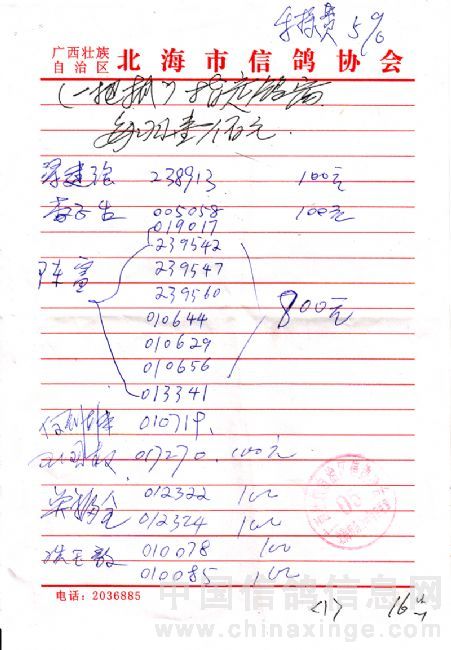 手续费 5%
广西壮族
自治区 北海市信鸽协会
(一把抓) 指定鸽
每羽壹佰元
238913 100元
005058 100元
019017
239542
239547
陈 239560 800元
010644
010629
010656
013341
010719.
017270. 100元
012322 100
012324 100
010078 100
010085 100
电话：2036885
<1> 16
中国信鸽信息网
www.chinaxinge.com